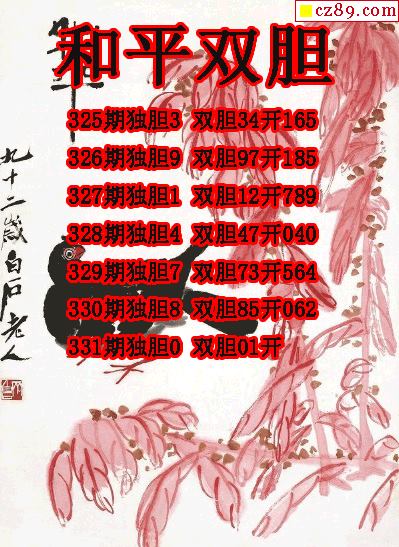 cz89.com
和平双胆
325期独胆3 双胆34开165
326期独胆9 双胆97开185
327期独胆1 双胆12开789
328期独胆4 双胆47开040
329期独胆7 双胆73开564
330期独胆8 双胆85开062
331期独胆0 双胆01开
九十二歲白石老人